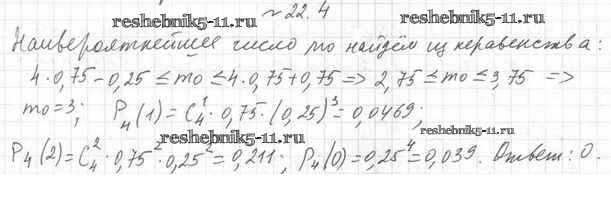 №22.4
reshebnik5-11.ru
reshebnik5-11.ru
Наивероятнейшее число mo найдём из неравенства:
4·0,75-0,25 ≤ mo ≤ 4·0,75+0,75 => 2,75 ≤ mo ≤ 3,75 =>
mo=3; P₄(1)=C₄¹·0,75·(0,25)³=0,0469;
reshebnik5-11.ru
reshebnik5-11.ru
P₄(2)=C₄²·0,75²·0,25²=0,211; P₄(0)=0,25⁴=0,039. Ответ: 0.